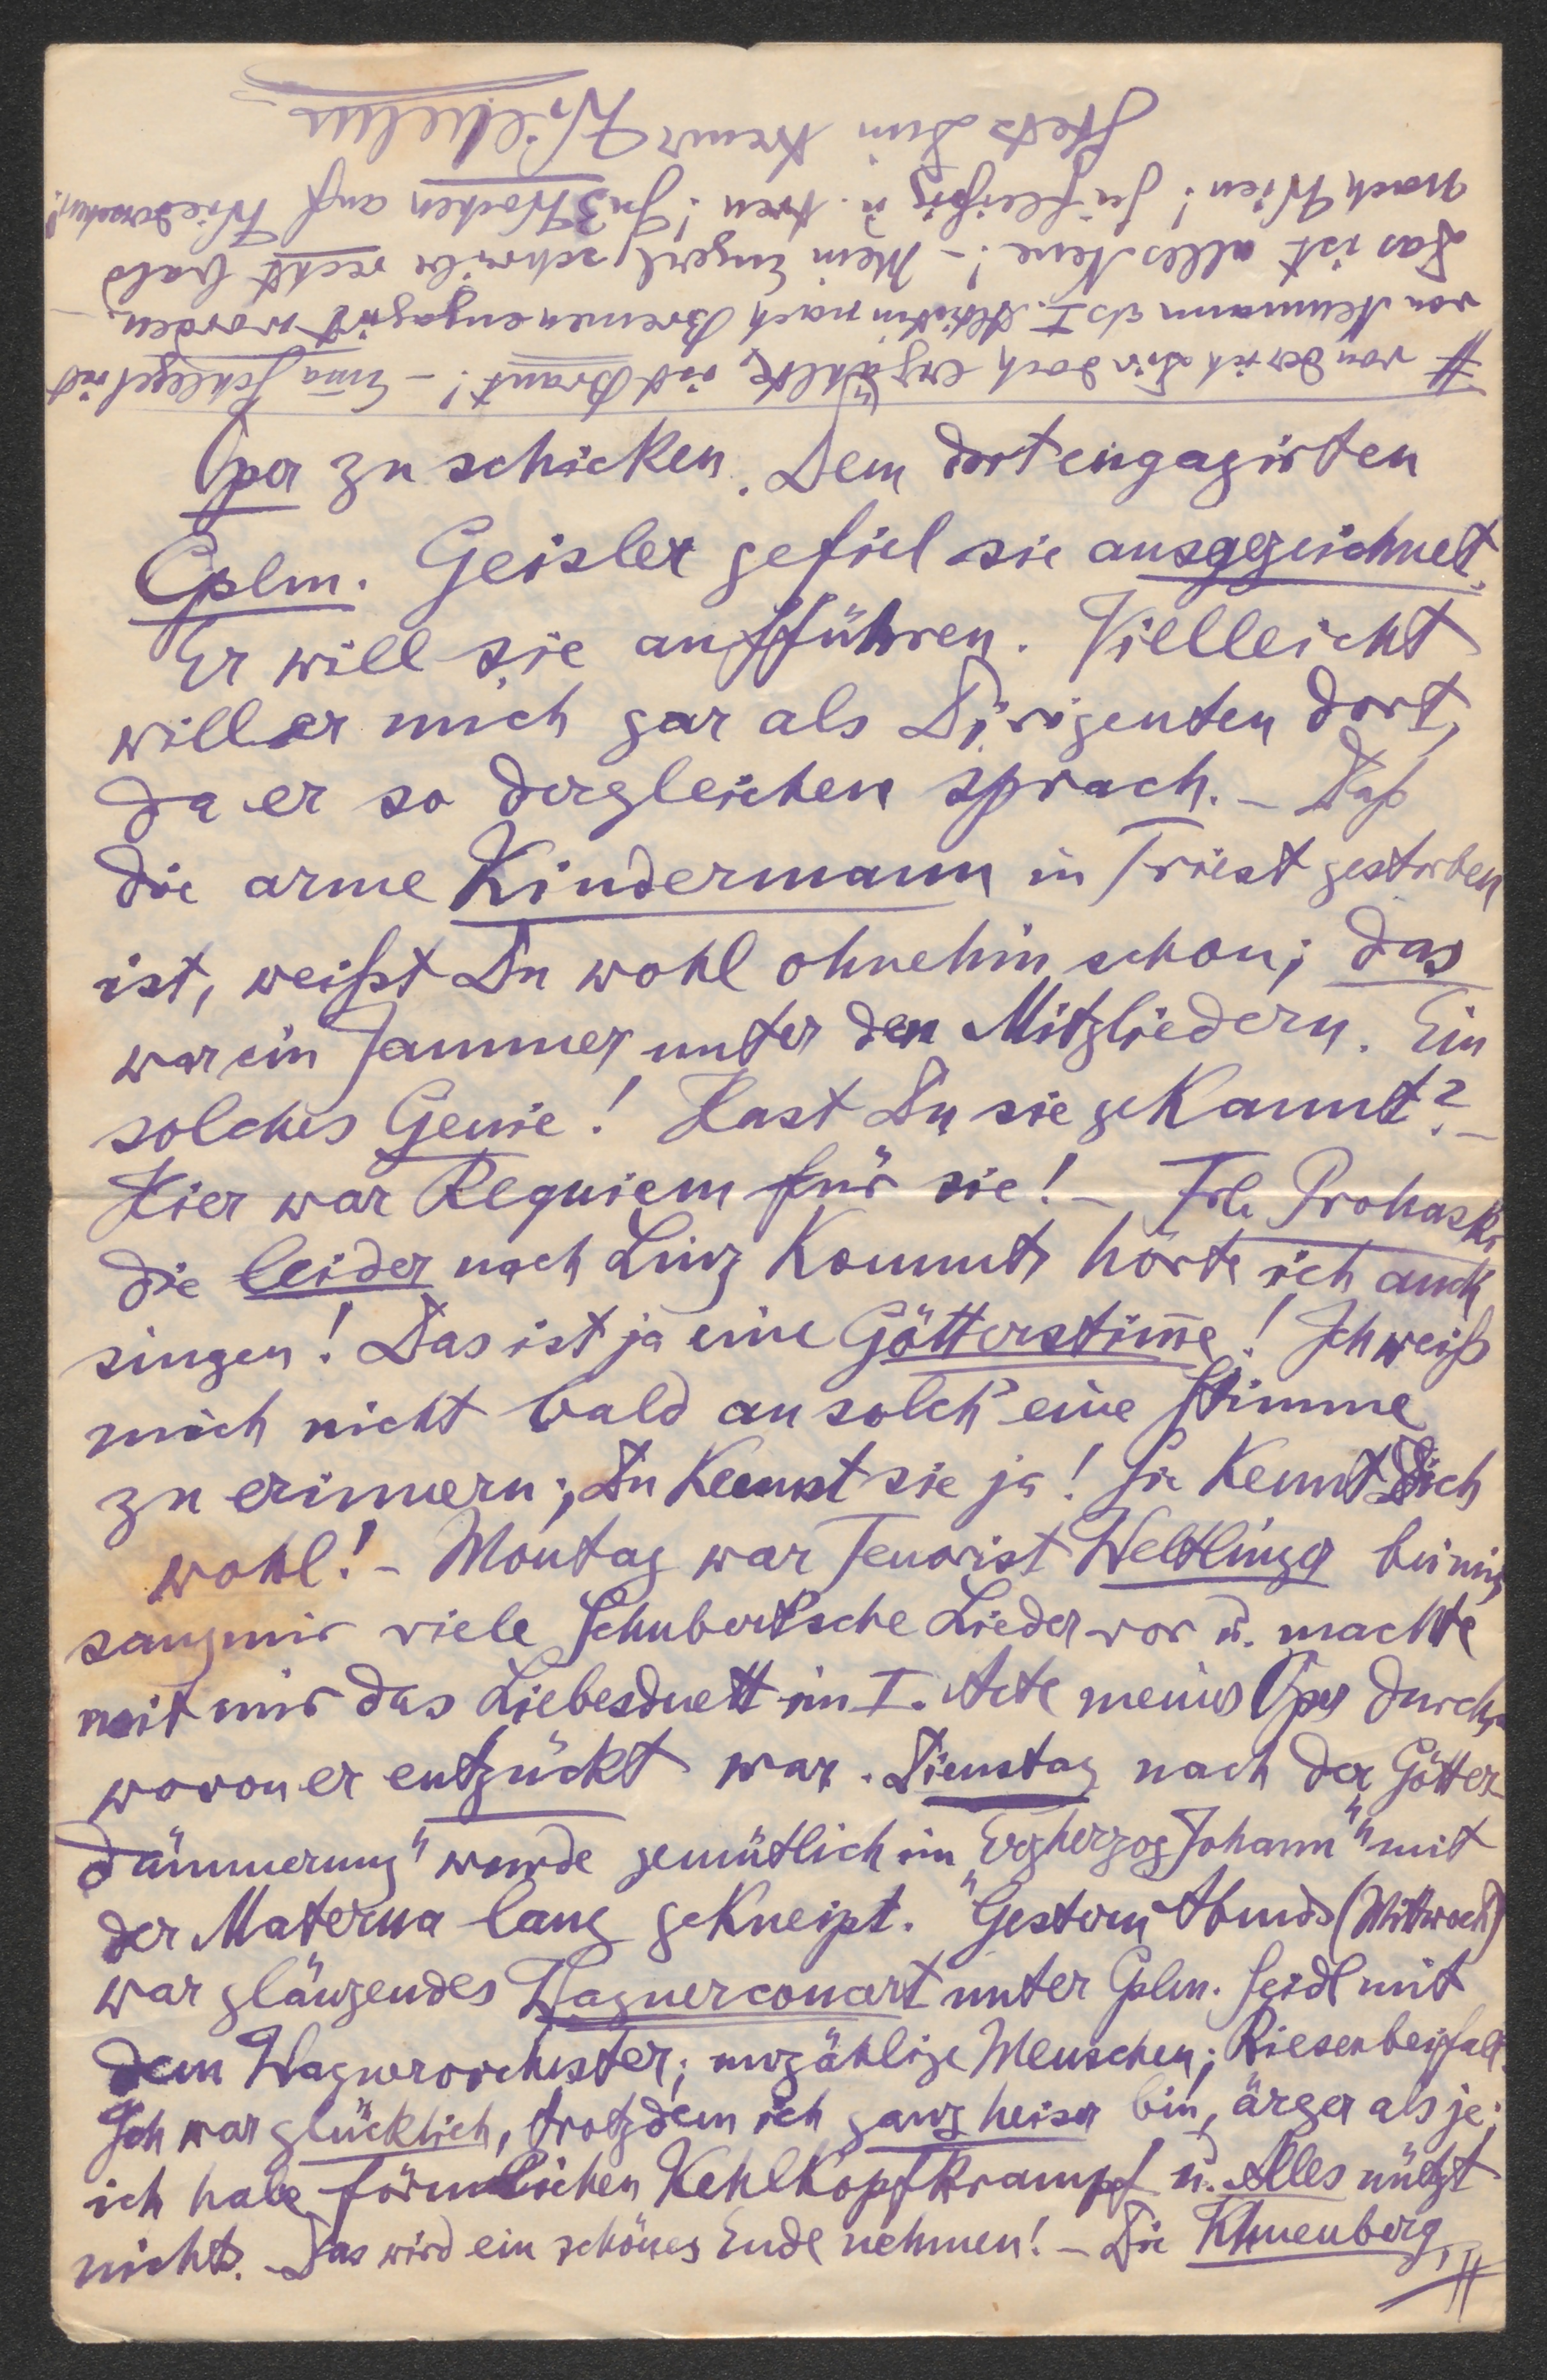 Oper zu schicken. Dem dort engagirten
Cplm. Geisler gefiel sie ausgezeichnet.
Er will sie aufführen. Vielleicht
will er mich gar als Dirigenten dort,
da er so dergleichen sprach. – Daß
die arme Kindermann in Triest gestorben
ist, weißt Du wohl ohnehin schon; das
war ein Jammer unter den Mitgliedern. Ein
solches Genie! Hast Du sie gekannt? –
Hier war Requiem für sie! – Frl. Prohaska
die leider nach Linz kommt, hörte ich auch
singen! Das ist ja eine Götterstim̅e! Ich weiß
mich nicht bald an solch' eine Stimme
zu erinnern; Du kennst sie ja! Sie kennt Dich
wohl! – Montag war Tenorist Weltlinger bei mir,
sang mir viele Schubert'sche Lieder vor u. machte
mit mir das Liebesduett im I. Acte meiner Oper durch,
wovon er entzückt war. Dienstag nach der Götter-
dämmerung" wurde gemütlich im „Erzherzog Johann" mit
der Materna lang gekneipt. Gestern Abends (Mittwoch)
war glänzendes Wagnerconcert unter Cplm. Seidl mit
dem Wagnerorchester; unzählige Menschen; Riesenbeifall.
Ich war glücklich, trotzdem ich ganz heiser bin, ärger als je;
ich habe förmlichen Kehlkopfkrampf u. Alles nützt
nichts. Das wird ein schönes Ende nehmen! – Die Khuenberg, #
# von der ich Dir doch erzählte, ist Braut! – Em̅a Schlegel ist
von Neumann als I. Altistin nach Bremen engagirt worden. –
Das ist alles Neue! – Mein Engerl, schreibe recht bald
nach Wien! Sei fleißig u. treu! In 3 Wochen auf Wiedersehen!
Stets Dein treuer Wilhelm